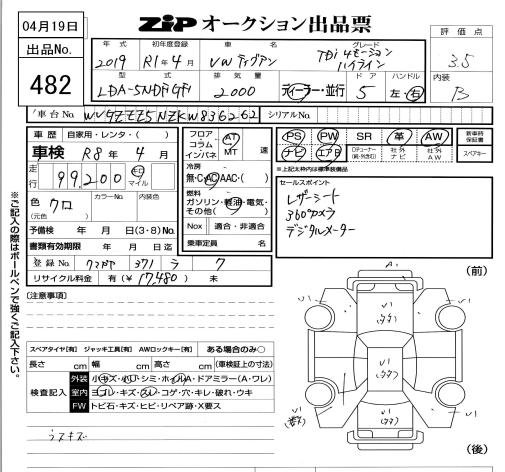 04月19日
ZIP オークション出品票
評価点
3.5
出品No.
482
年式 初年度登録 車名 グレード
2019 R1年4月 VWティグアン TDi 4モーション ハイライン
型式 排気量 ドア ハンドル
2000 ディーラー・並行 5 左・右
内装
B
車台No. シリアルNo.
車歴 自家用・レンタ・( )
車検 R8年4月
走行 99,200 キロ マイル
色 クロ (元色) カラーNo. 内装色
予備検 年 月 日(3・8)No.
書類有効期限 年 月 日迄
登録No. 371 ラ 7
リサイクル料金 有(¥17,480) 未
フロア コラム インパネ AT MT 速
冷房
無・C・AC・AAC・( )
燃料
ガソリン・軽油・電気・その他( )
Nox 適合・非適合
乗車定員 名
PS PW SR 革 AW
ナビ エアB Dチューナー(純・外含む) 社外ナビ 社外AW
新車時保証書
スペアキー
※上記太枠内は標準装備品
セールスポイント
レザーシート
360°カメラ
デジタルメーター
※ご記入の際はボールペンで強くご記入下さい。
[注意事項]
スペアタイヤ[有] ジャッキ工具[有] AWロックキー[有] ある場合のみ○
長さ cm 幅 cm 高さ cm (車検証上の寸法)
検査記入
外装 小キズ・小凹・シミ・ホイルA・ドアミラー(A・ワレ)
室内 ヨゴレ・キズ・スレ・コゲ・穴・キレ・破れ・ウキ
FW トビ石・キズ・ヒビ・リペア跡・X要ス
うすキズ
(前)
A1
(後)